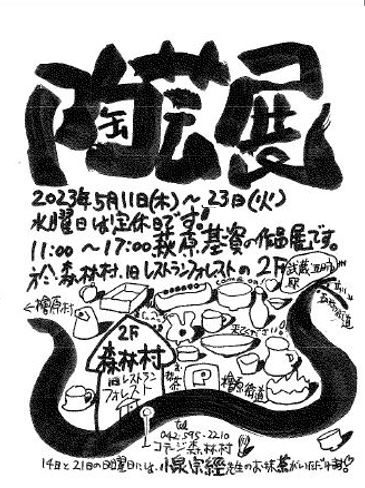 陶芸展
2023年5月11日(木)~23日(火)
水曜日は定休日です。
11:00~17:00萩原基資の作品展です。
於 森林村.旧レストランフォレストの2F
武蔵五日市駅
←檜原村
come on
2F
森林村
旧レストラン
フォレスト
喫茶
P
檜原街道
tel
042-595-2210
コテージ森林村
14日と21日の日曜日には、小泉宗経先生のお抹茶がいただけます